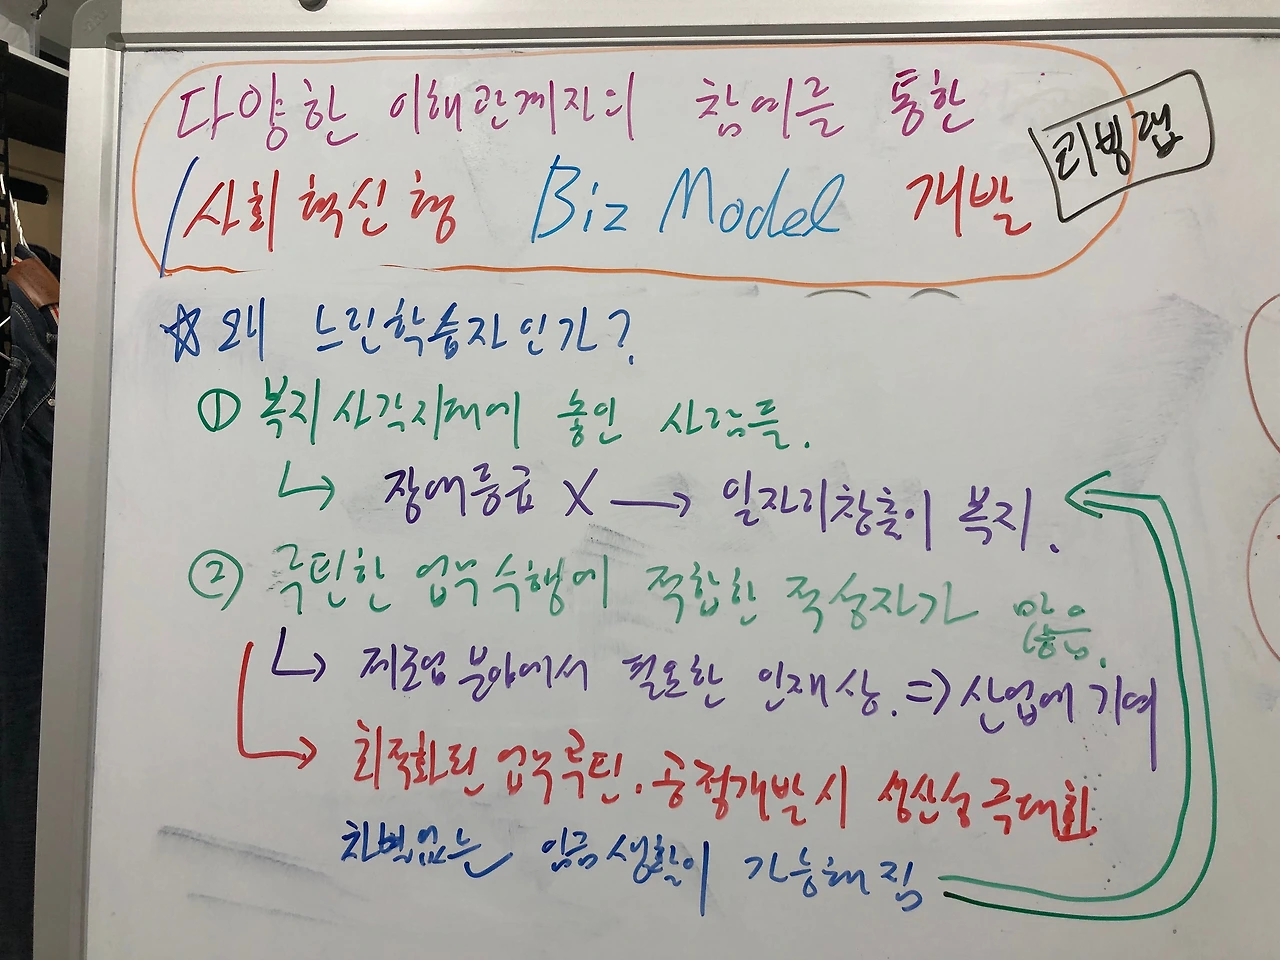 다양한 이해관계자의 참여를 통한
사회혁신형 Biz Model 개발
리빙랩
☆왜 느린학습자인가?
① 복지사각지대에 놓인 사람들.
↳ 장애등급 X → 일자리창출이 복지.
② 루틴한 업무수행에 적합한 적성자가 많음
↳ 제조업 분야에서 필요한 인재상. ⇒ 산업에 기여
→ 최적화된 업무루틴. 공정개발시 생산성 극대화
차별없는 임금생활이 가능해짐